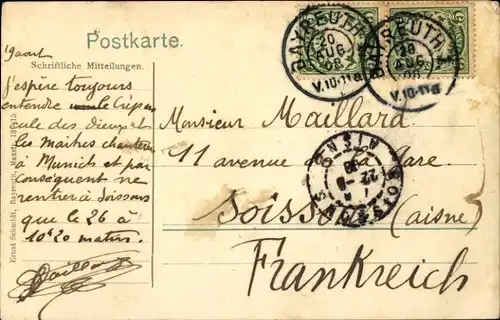 Postkarte.
BAYREUTH
20
AUG
08
V.10-11
BAYREUTH
20
AUG
08
V.10-11
Schriftliche Mitteilungen.
19 aout
J'espère toujours
entendre le Crépus
cule des dieux et
les maitres chanteurs
à Munich et par
conséquent ne
rentrer à Soissons
que le 26 à
10h20 matin.
Maillard
Monsieur Maillard
11 avenue de la Gare
Soissons (aisne)
Frankreich
SOISSONS
AISNE
22 - 8
08
Ernst Schmidt, Bayreuth, Maxstr.